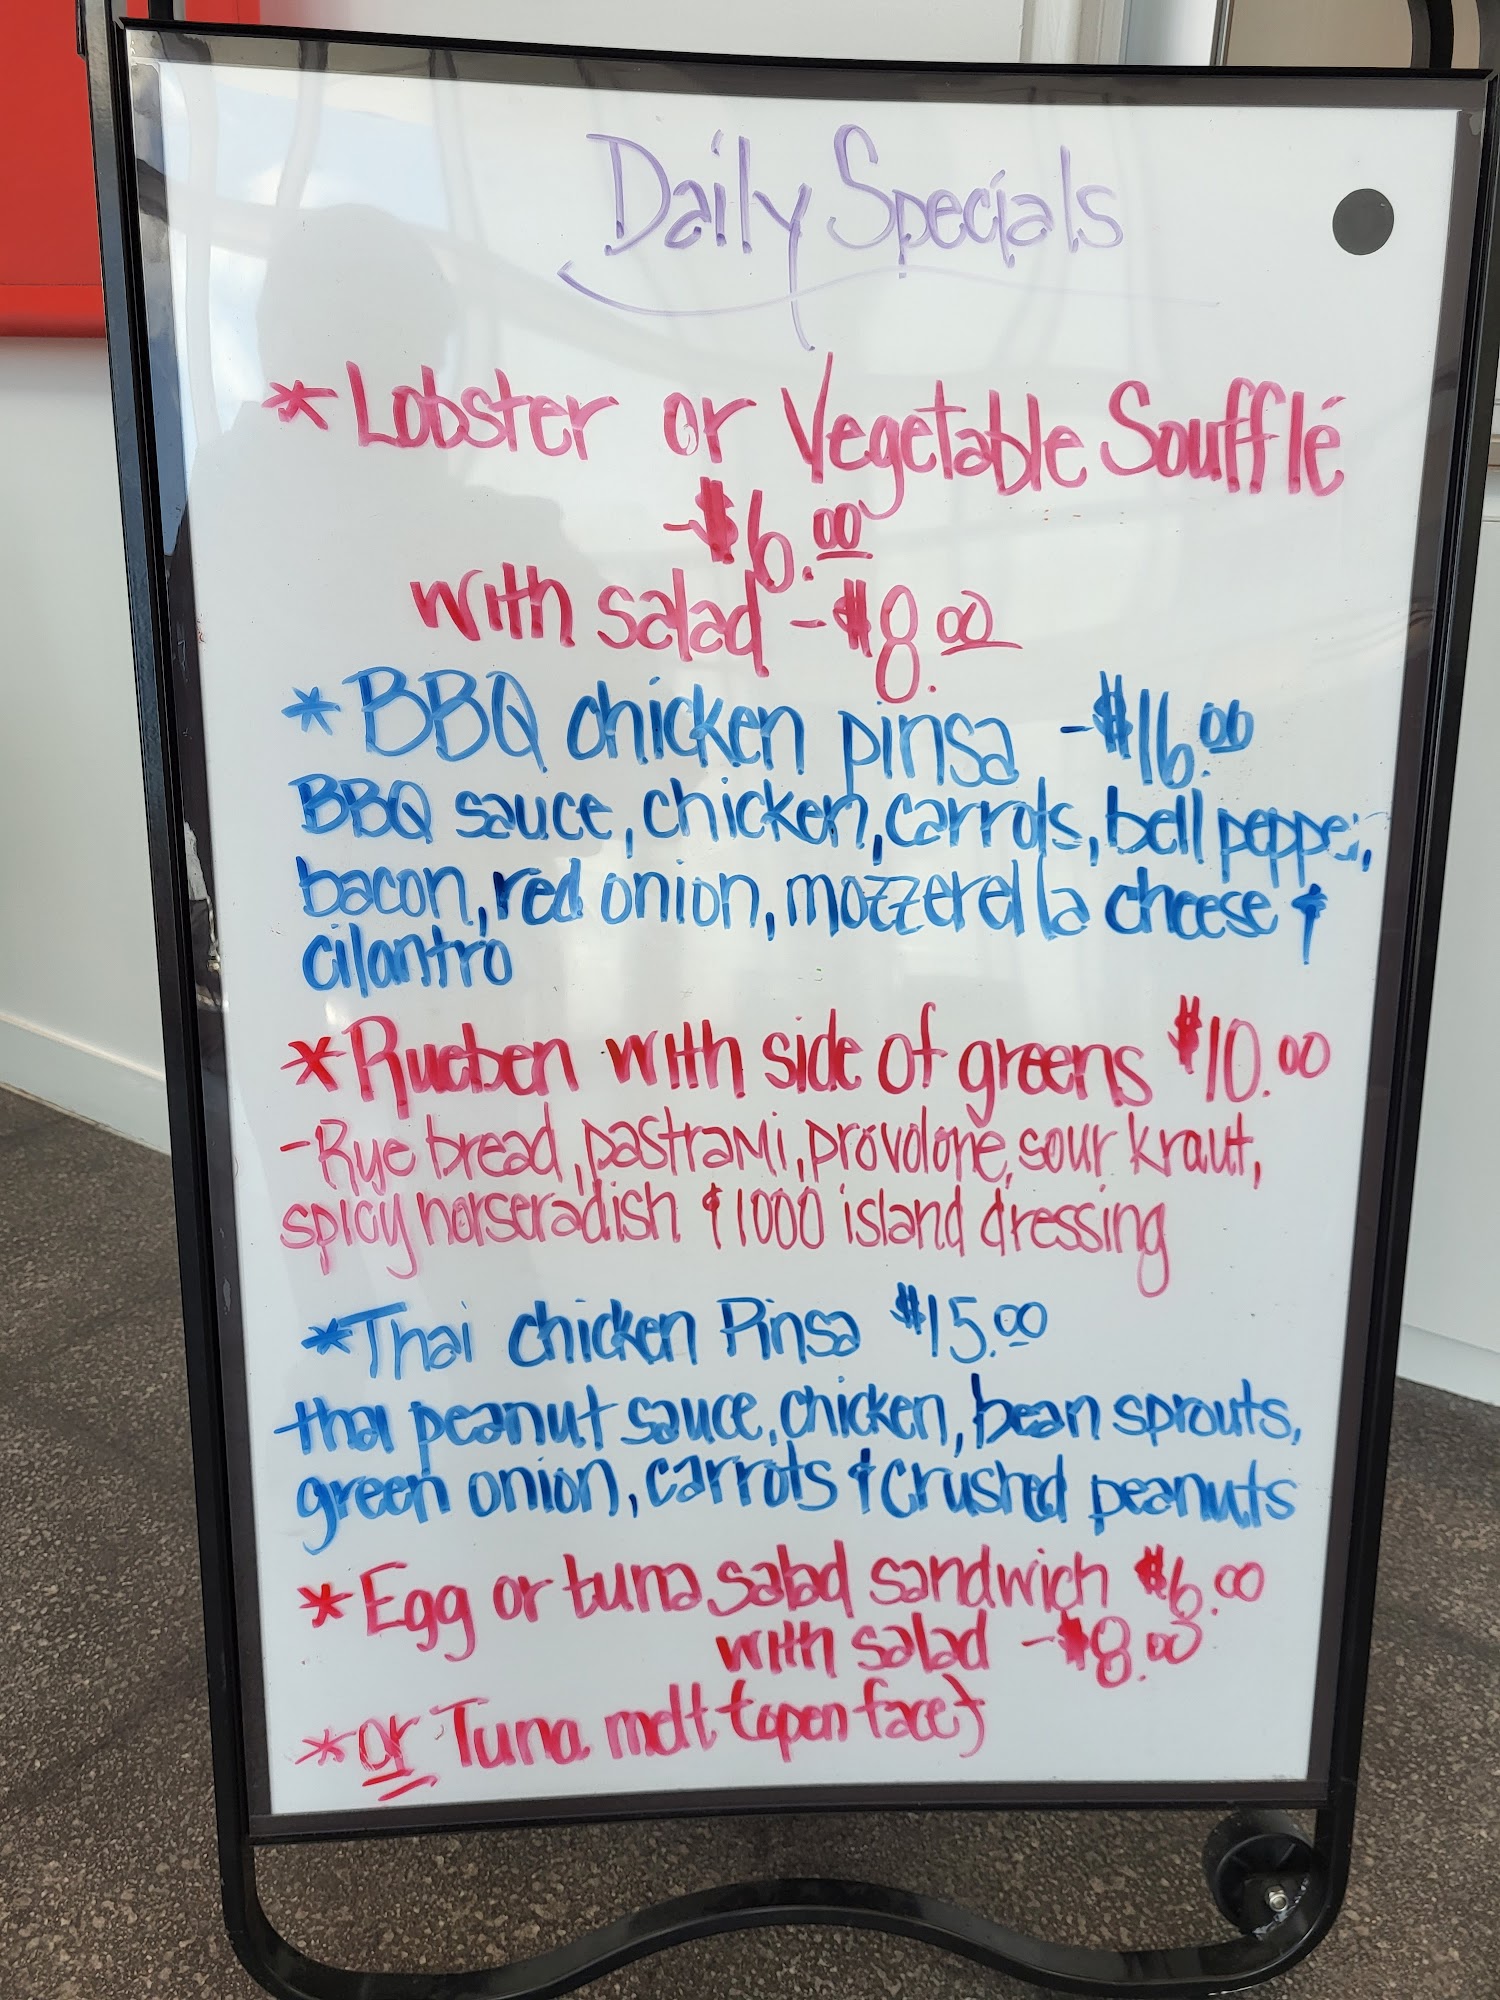 Daily Specials
* Lobster or Vegetable Soufflé
-$6.00
with salad -$8.00
* BBQ chicken pinsa -$16.00
BBQ sauce, chicken, carrots, bell pepper,
bacon, red onion, mozzerella cheese &
cilantro
* Rueben with side of greens $10.00
-Rye bread, pastrami, provolone, sour kraut,
spicy horseradish & 1000 island dressing
* Thai chicken Pinsa $15.00
thai peanut sauce, chicken, bean sprouts,
green onion, carrots & crushed peanuts
* Egg or tuna salad sandwich $6.00
with salad -$8.00
* or Tuna melt (open face)